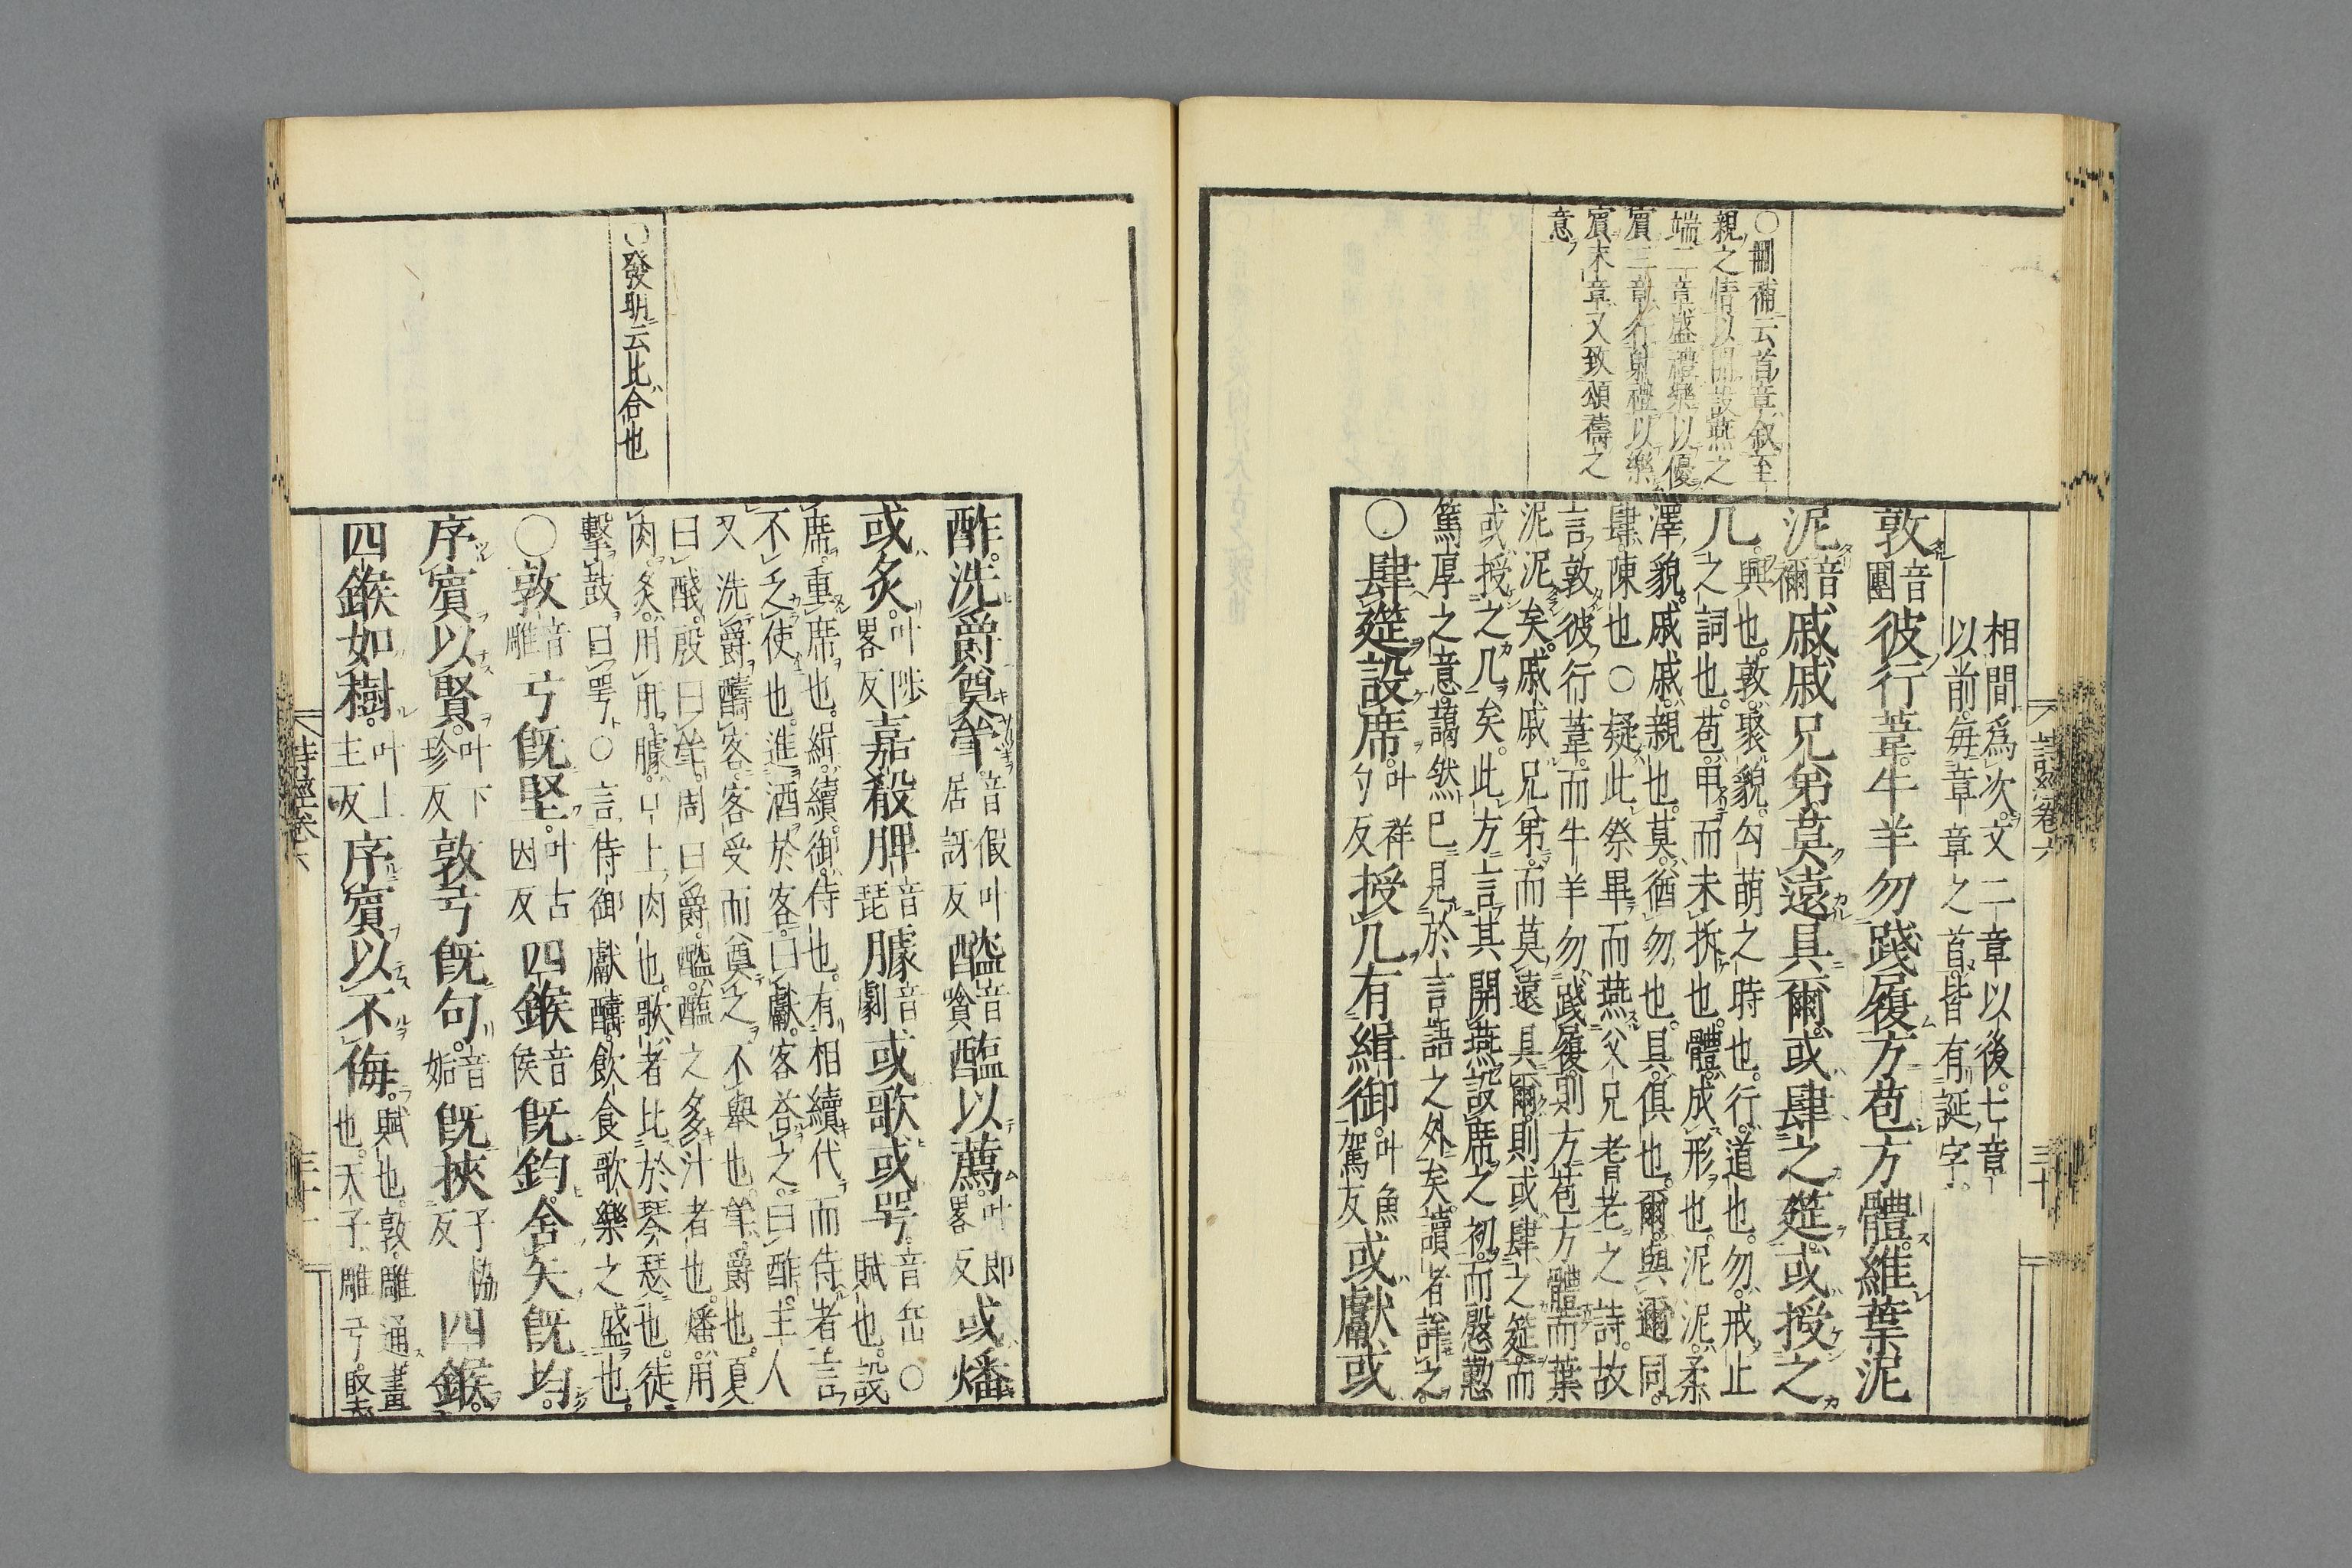 ○刪補云首章叙至
親之情以開設燕之
端二章盛禮樂以優
賔三章行射禮以樂
賔末章又致頌禱之
意
詩經卷六
三十
相間爲次又二章以後七章
以前每章章之首皆有誕字
敦音團彼行葦牛羊勿踐履方苞方體維葉泥
泥音禰戚戚兄弟莫遠具爾或肆之筵或授之
几興也敦聚貌勾萌之時也行道也勿戒止
之詞也苞甲而未拆也體成形也泥泥柔
澤貌戚戚親也莫猶勿也具俱也爾與邇同
肆陳也○疑此祭畢而燕父兄耆老之詩故
言敦彼行葦而牛羊勿踐履則方苞方體而葉
泥泥矣戚戚兄弟而莫遠具爾則或肆之筵而
或授之几矣此方言其開燕設席之初而慇懃
篤厚之意藹然已見於言語之外矣讀者詳之
○肆筵設席叶祥勺反授几有緝御叶魚駕反或獻或
酢洗爵奠斝音假叶居訝反醓音噡醢以薦叶即畧反或燔
或炙叶陟畧反嘉殽脾音琵臄音劇或歌或咢音岳○賦也設
席重席也緝續御侍也有相續代而侍者言
不乏使也進酒於客曰獻客荅之曰酢主人
又洗爵醻客客受而奠之不舉也斝爵也夏
曰醆殷曰斝周曰爵醓醢之多汁者也燔用
肉炙用肝臄口上肉也歌者比於琴瑟也徒
擊鼓曰咢○言侍御獻醻飲食歌樂之盛也
○敦音雕弓既堅叶古因反四鍭音侯既鈞舍矢既均
序賔以賢叶下珍反敦弓既句音姤既挾子協反四鍭
四鍭如樹叶上主反序賔以不侮賦也敦雕通畫也天子雕弓
○發明云比合也
詩經卷六
三十一